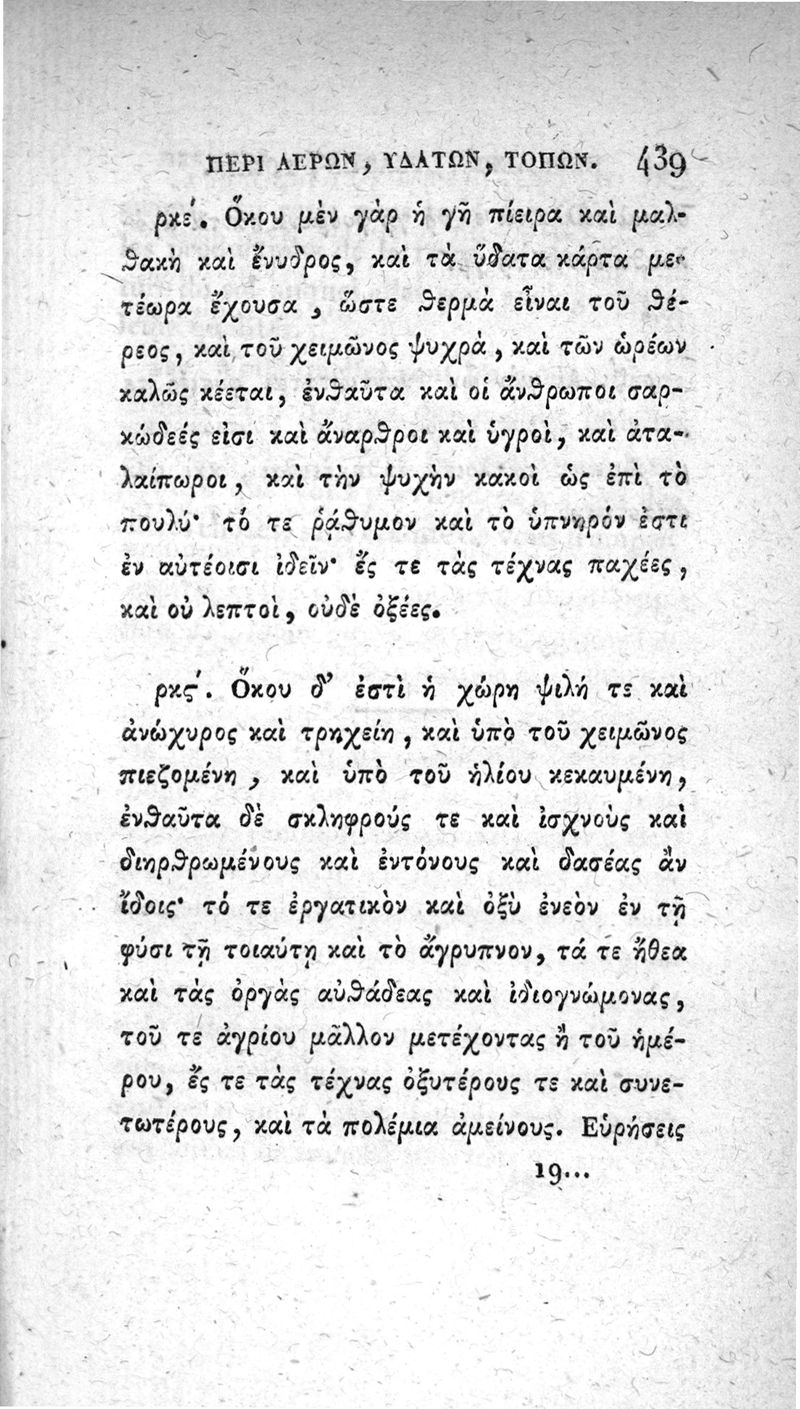 ΠΕΡΙ ΑΕΡΩΝ, ΥΔΑΤΩΝ, ΤΟΠΩΝ. 439
ρκέ. Ὅκου μὲν γὰρ ἡ γῆ πίειρα καὶ μαλ-
θακὴ καὶ ἔνυδρος, καὶ τὰ ὕδατα κάρτα με-
τέωρα ἔχουσα, ὥστε θερμὰ εἶναι τοῦ θέ-
ρεος, καὶ τοῦ χειμῶνος ψυχρὰ, καὶ τῶν ὡρέων
καλῶς κέεται, ἐνθαῦτα καὶ οἱ ἄνθρωποι σαρ-
κώδεές εἰσι καὶ ἄναρθροι καὶ ὑγροὶ, καὶ ἀτα-
λαίπωροι, καὶ τὴν ψυχὴν κακοὶ ὡς ἐπὶ τὸ
πουλύ· τό τε ῥάθυμον καὶ τὸ ὑπνηρόν ἐστι
ἐν αὐτέοισι ἰδεῖν· ἔς τε τὰς τέχνας παχέες,
καὶ οὐ λεπτοὶ, οὐδὲ ὀξέες.
ρκϛ΄. Ὅκου δ’ ἐστὶ ἡ χώρη ψιλή τε καὶ
ἀνώχυρος καὶ τρηχείη, καὶ ὑπὸ τοῦ χειμῶνος
πιεζομένη, καὶ ὑπὸ τοῦ ἡλίου κεκαυμένη,
ἐνθαῦτα δὲ σκληφρούς τε καὶ ἰσχνοὺς καὶ
διηρθρωμένους καὶ ἐντόνους καὶ δασέας ἂν
ἴδοις· τό τε ἐργατικὸν καὶ ὀξὺ ἐνεὸν ἐν τῇ
φύσι τῇ τοιαύτῃ καὶ τὸ ἄγρυπνον, τά τε ἤθεα
καὶ τὰς ὀργὰς αὐθάδεας καὶ ἰδιογνώμονας,
τοῦ τε ἀγρίου μᾶλλον μετέχοντας ἢ τοῦ ἡμέ-
ρου, ἔς τε τὰς τέχνας ὀξυτέρους τε καὶ συνε-
τωτέρους, καὶ τὰ πολέμια ἀμείνους. Εὑρήσεις
19...